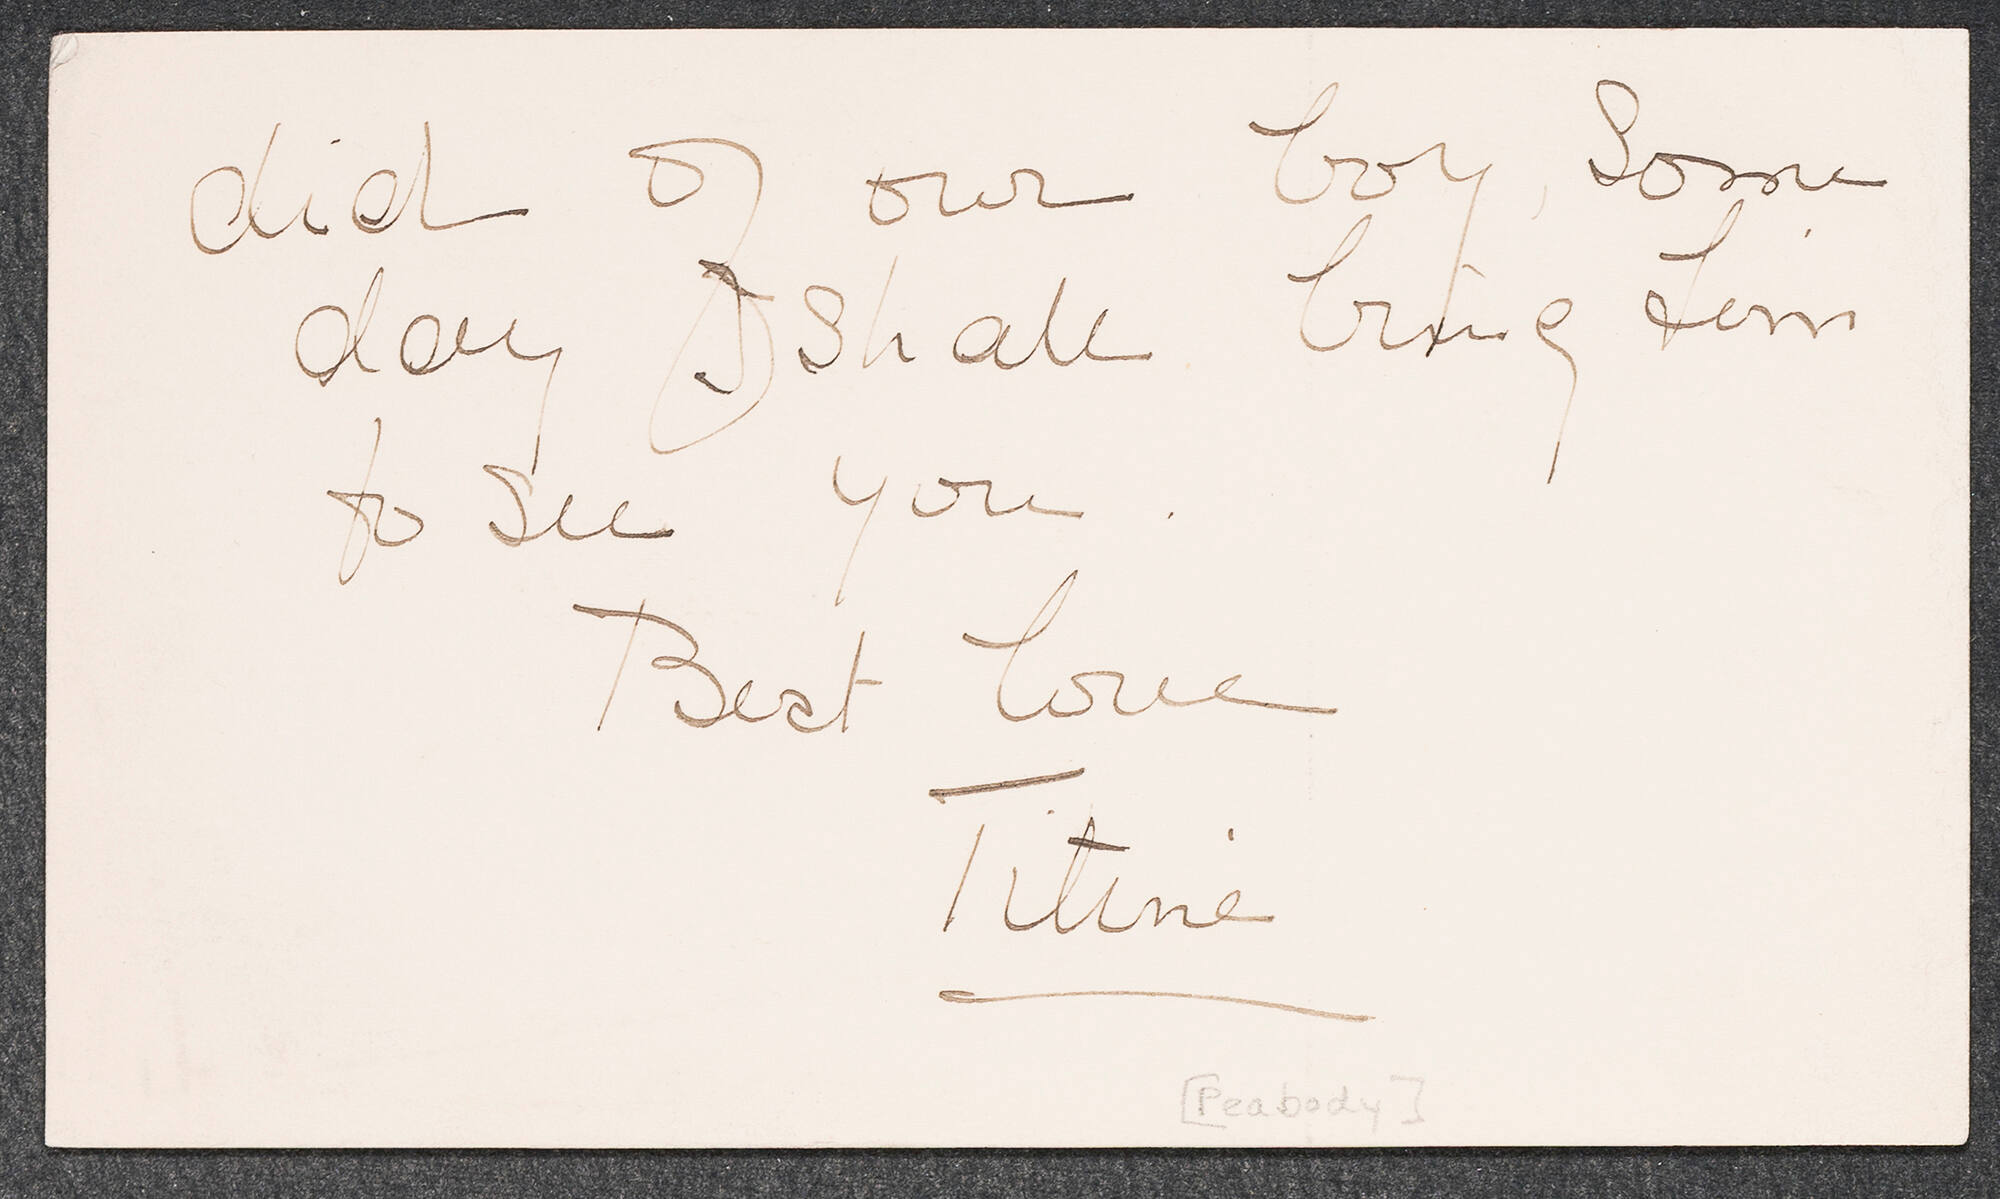 did of our boy, Some
day I Shall bring him
to See you.
Best love
Titine
[Peabody]